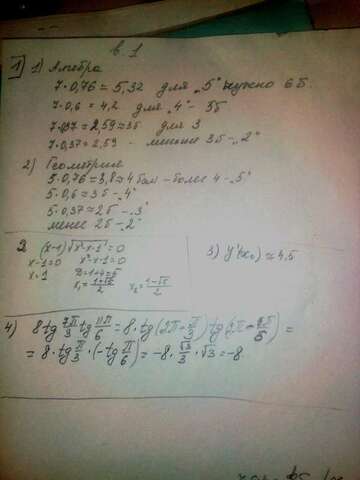 в. 1
1) 1) Алгебра
7·0,76 = 5,32 для „5" нужно 6б.
7·0,6 = 4,2 для „4" - 5б
7·0,37 = 2,59≈3б для 3
7·0,37 = 2,59 - меньше 3б - „2"
2) Геометрия
5·0,76 = 3,8 ≈ 4 бал - более 4 - „5"
5·0,6 = 3б - „4"
5·0,37 ≈ 2б - „3"
менее 2б - „2"
2. (x-1)√x²-x-1 = 0
x-1=0 x²-x-1=0
x=1 D=1+4=5
x₁ = (1+√5)/2 x₂ = (1-√5)/2
3) y'(x₀) ≈ 4,5
4) 8 tg 7π/3 tg 11π/6 = 8·tg(2π + π/3) tg(2π - π/6) =
= 8·tg π/3 ·(-tg π/6) = -8·√3/3·√3 = -8